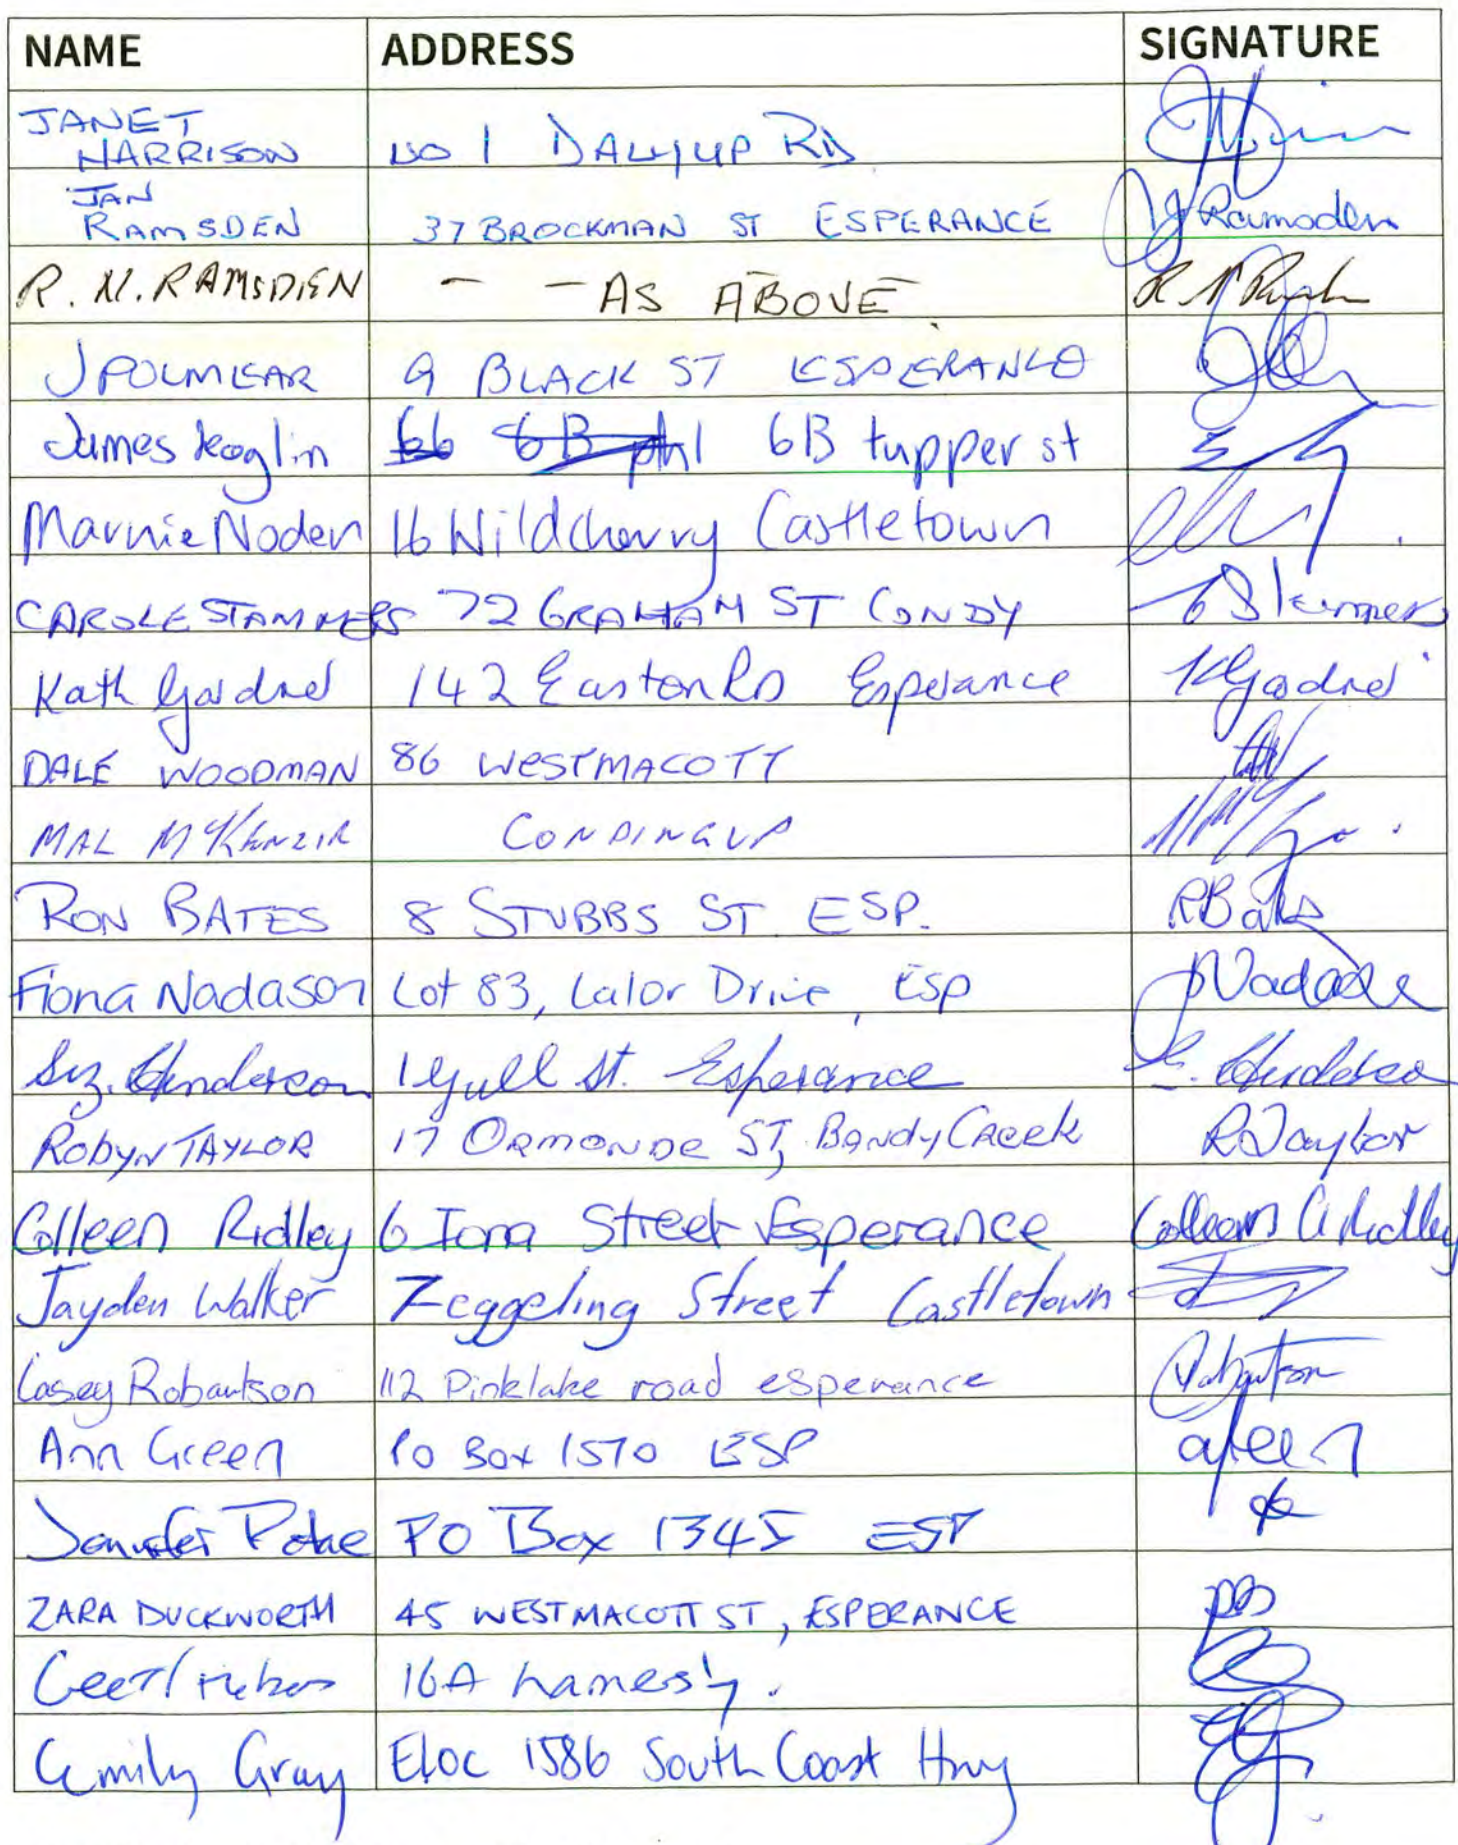 NAME ADDRESS SIGNATURE
JANET
HARRISON No 1 DALYUP RD
JAN
RAMSDEN 37 BROCKMAN ST ESPERANCE J Ramsden
R. N. RAMSDEN - - AS ABOVE
J POLMEAR 9 BLACK ST ESPERANCE
James Koglin 6B tupper st
Marnie Noden 16 Wildcherry Castletown
CAROLE STAMMERS 72 GRAHAM ST CONDY C Stammers
Kath Gardner 142 Easton RD Esperance K Gardner
DALE WOODMAN 86 WESTMACOTT
MAL McKENZIE CONDINGUP
RON BATES 8 STUBBS ST ESP. R Bates
Fiona Nadason Lot 83, Lalor Drive, Esp
Henderson 1 Gull St. Esperance Henderson
ROBYN TAYLOR 17 ORMONDE ST, BANDY CREEK R Taylor
Colleen Ridley 6 Iona Street Esperance Colleen A Ridley
Jayden Walker Zeggeling Street Castletown
Casey Robartson 112 Pinklake road esperance
Ann Green PO Box 1570 ESP
Jennifer PO Box 1345 ESP
ZARA DUCKWORTH 45 WESTMACOTT ST, ESPERANCE
16A
Emily Gray Eloc 1586 South Coast Hwy